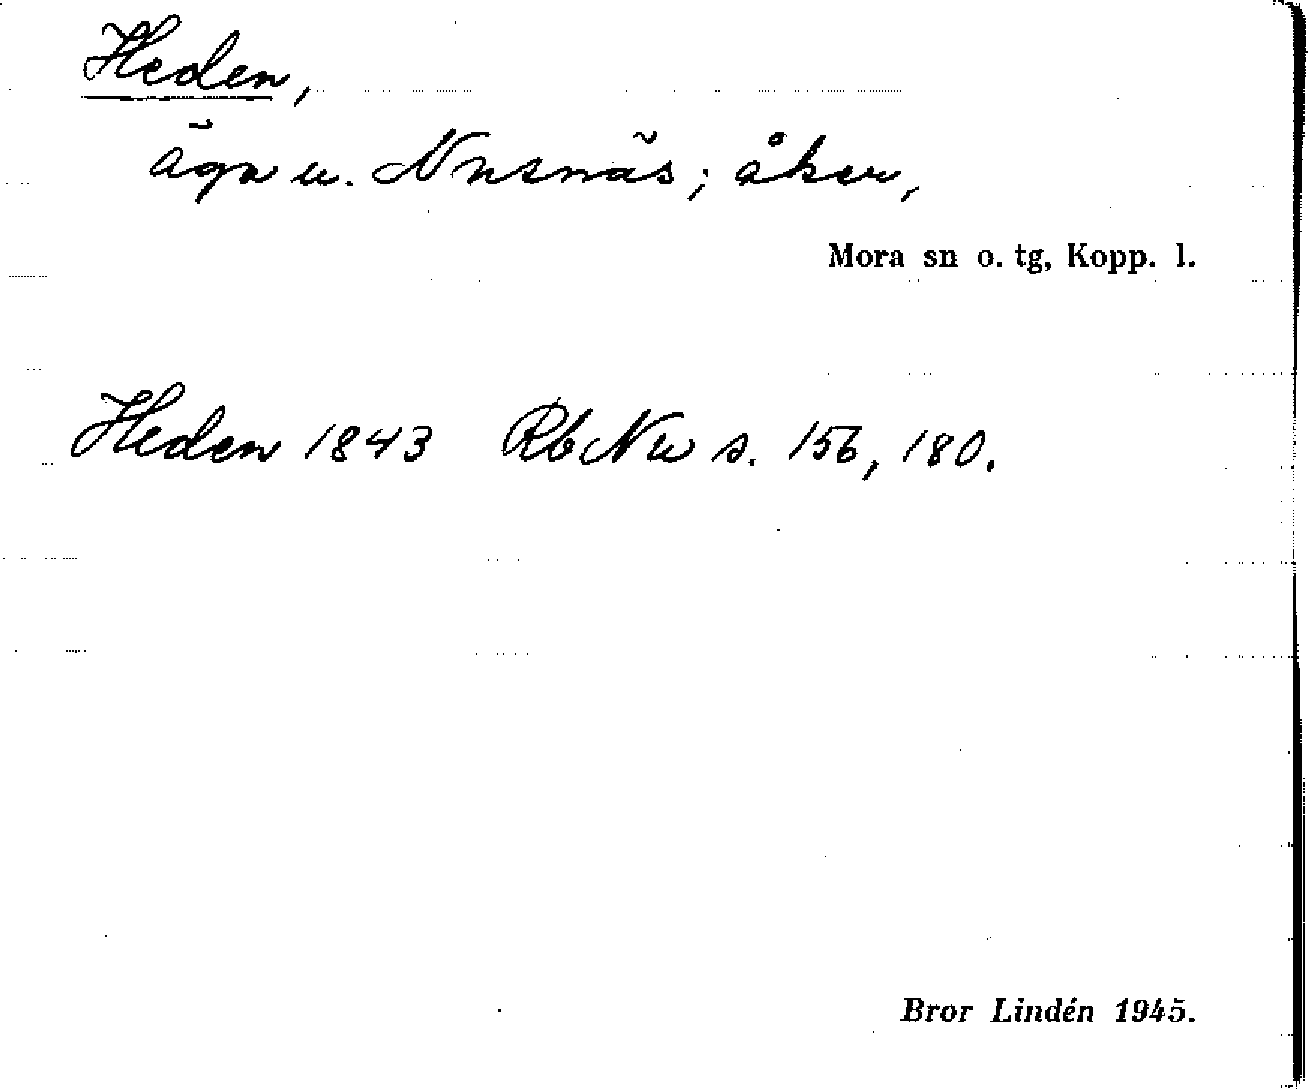 Heden,
ägn u. Nusnäs; åker,
Mora sn o. tg, Kopp. l.
Heden 1843 Rb Nu s. 156, 180.
Bror Lindén 1945.